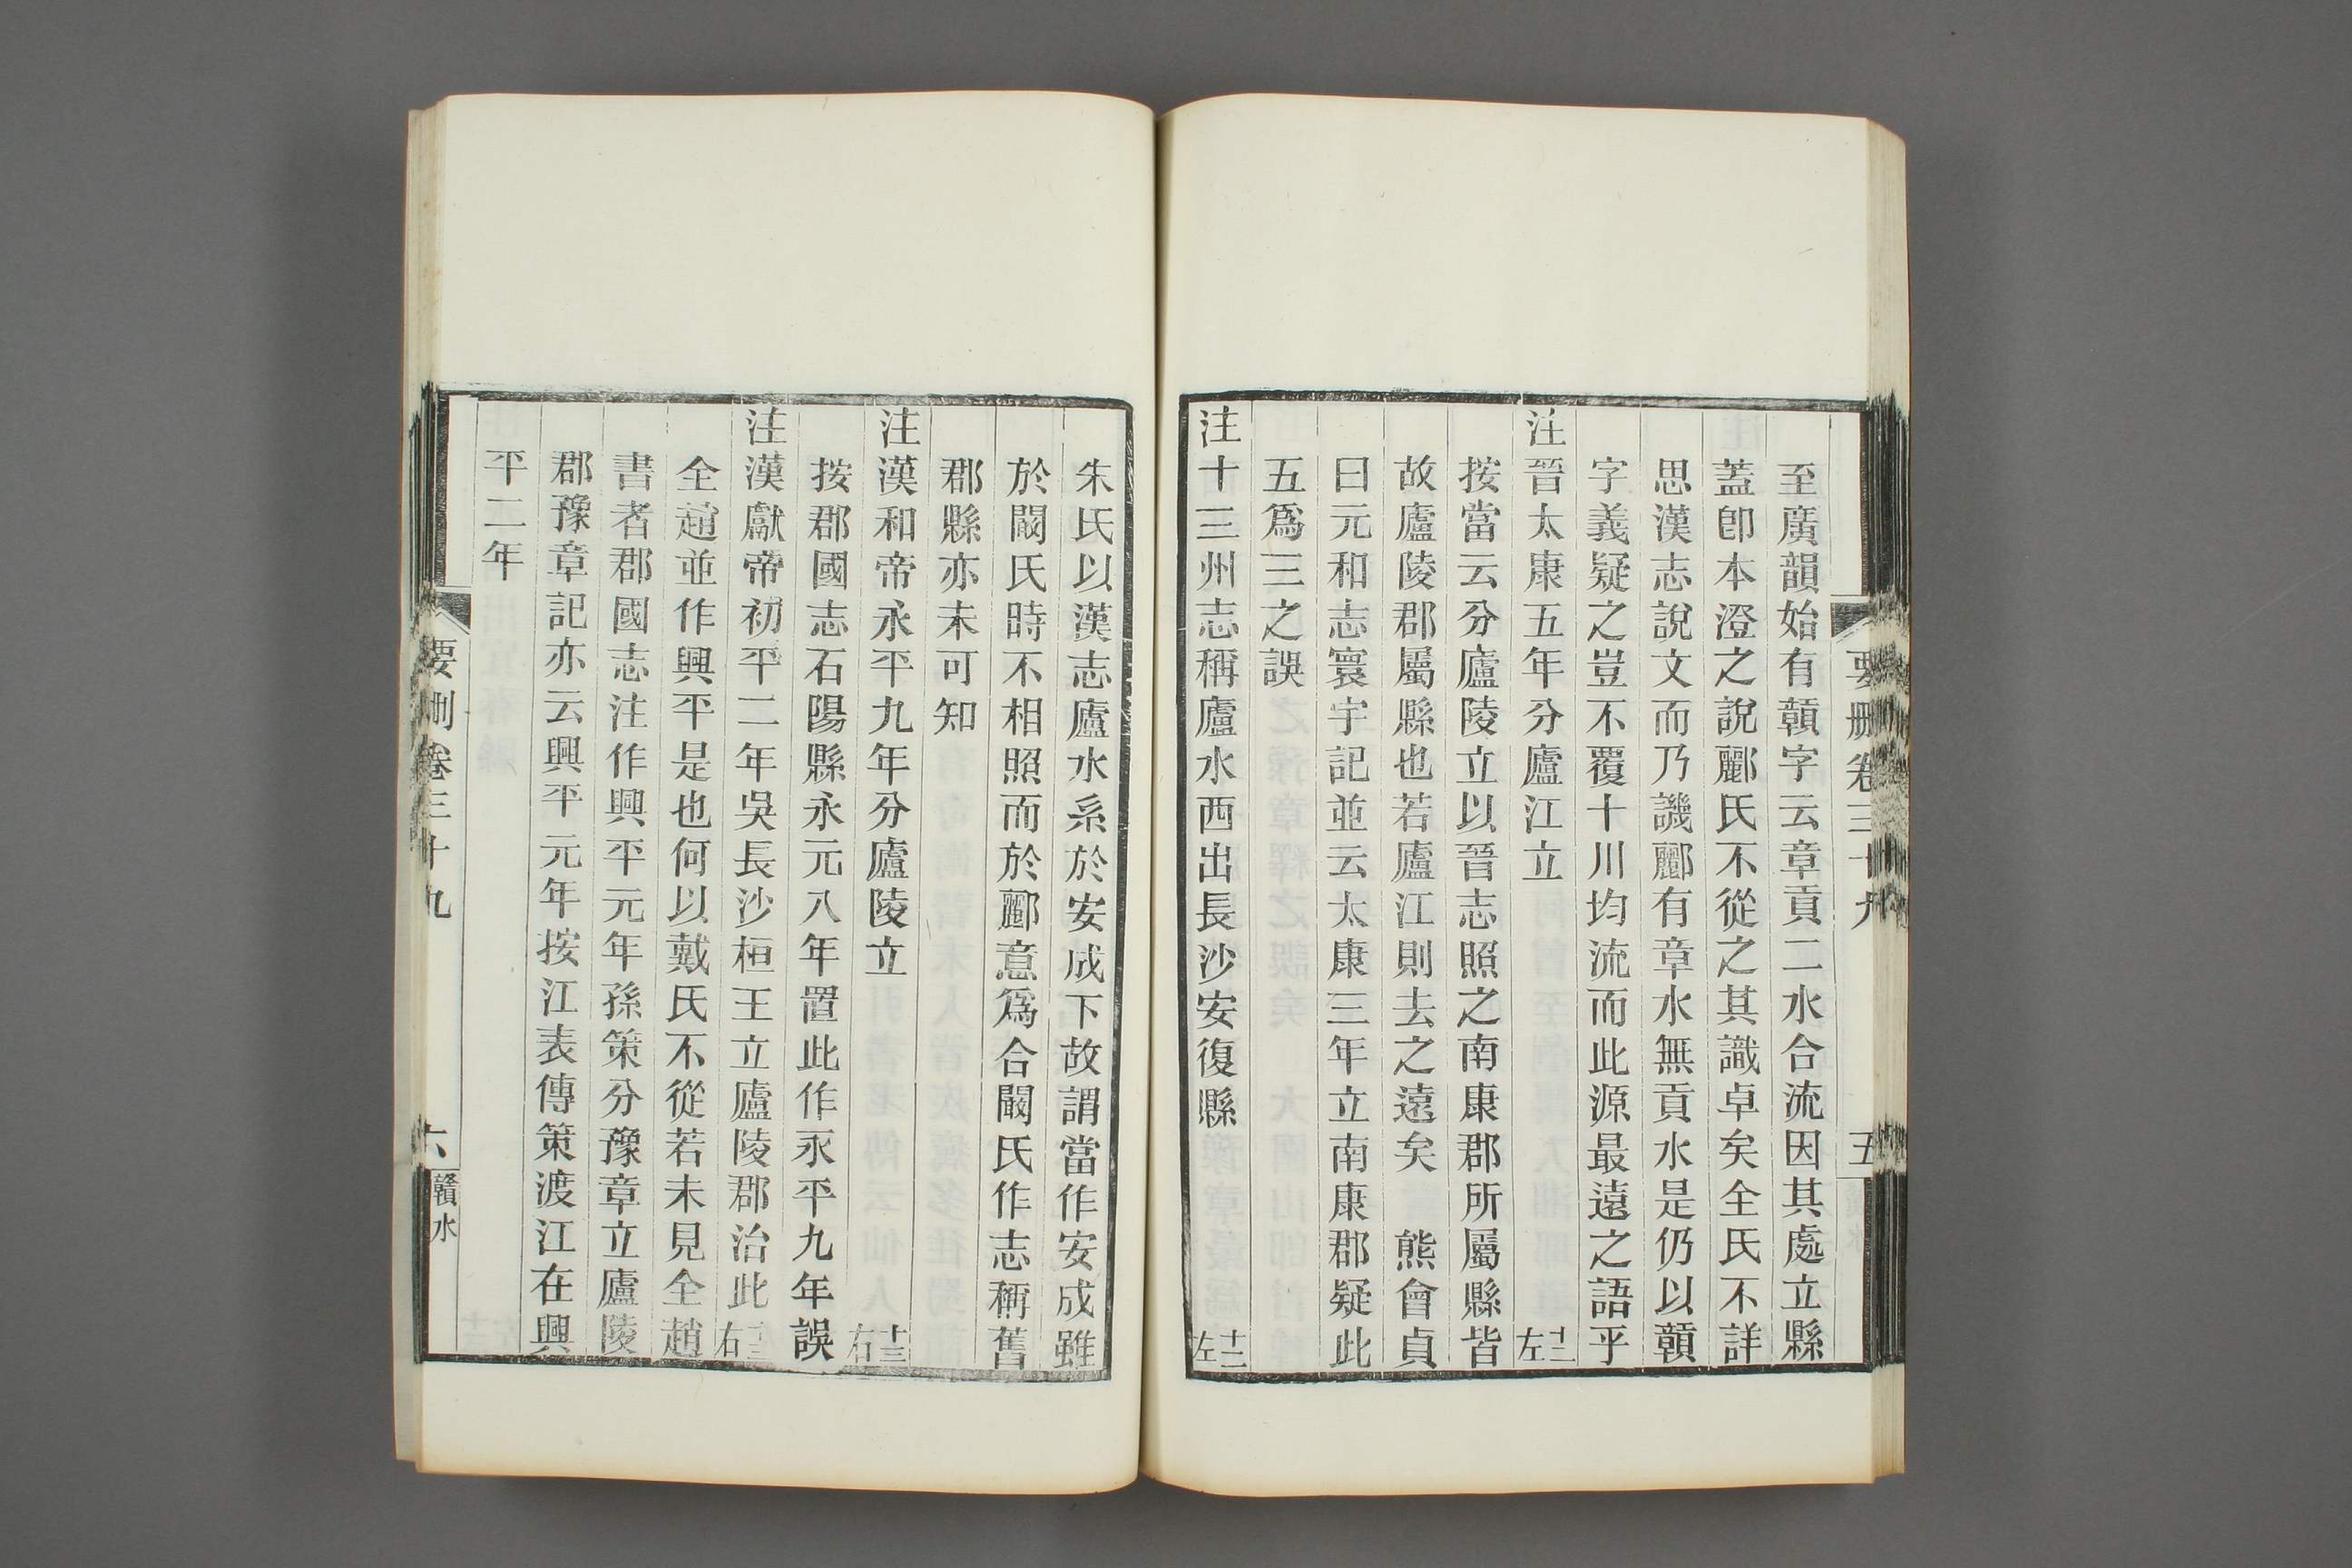 要刪卷三十九
五
至廣韻始有贑字云章貢二水合流因其處立縣
蓋卽本澄之說酈氏不從之其識卓矣全氏不詳
思漢志說文而乃譏酈有章水無貢水是仍以贑
字義疑之豈不覆十川均流而此源最遠之語乎
注晉太康五年分廬江立 十二左
按當云分廬陵立以晉志照之南康郡所屬縣皆
故廬陵郡屬縣也若廬江則去之遠矣 熊會貞
曰元和志寰宇記並云太康三年立南康郡疑此
五爲三之誤
注十三州志稱廬水西出長沙安復縣 十二左
朱氏以漢志廬水系於安成下故謂當作安成雖
於闞氏時不相照而於酈意爲合闞氏作志稱舊
郡縣亦未可知
注漢和帝永平九年分廬陵立 十三右
按郡國志石陽縣永元八年置此作永平九年誤
注漢獻帝初平二年吳長沙桓王立廬陵郡治此 十三右
全趙並作興平是也何以戴氏不從若未見全趙
書者郡國志注作興平元年孫策分豫章立廬陵
郡豫章記亦云興平元年按江表傳策渡江在興
平二年
要刪卷三十九
六
贛水